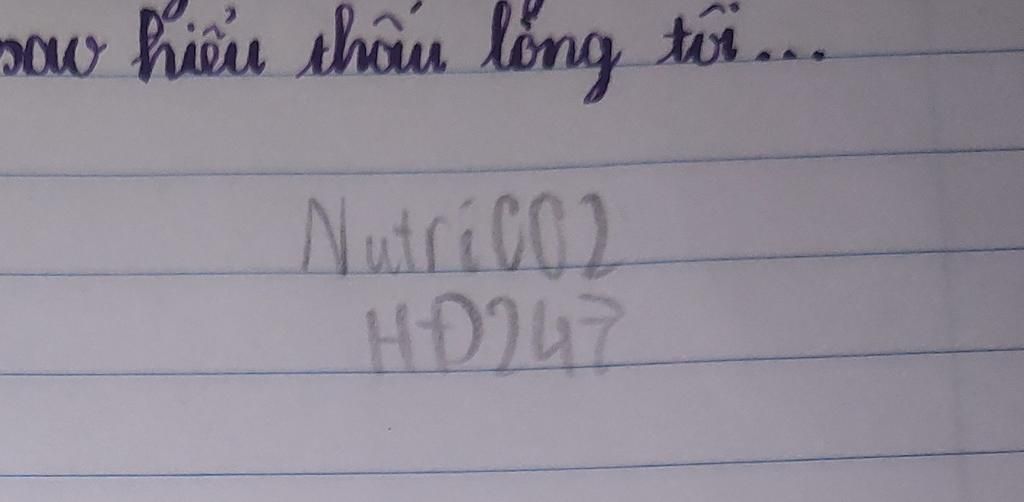 sao hiểu thấu lòng tôi...
NutriCO2
HĐ247